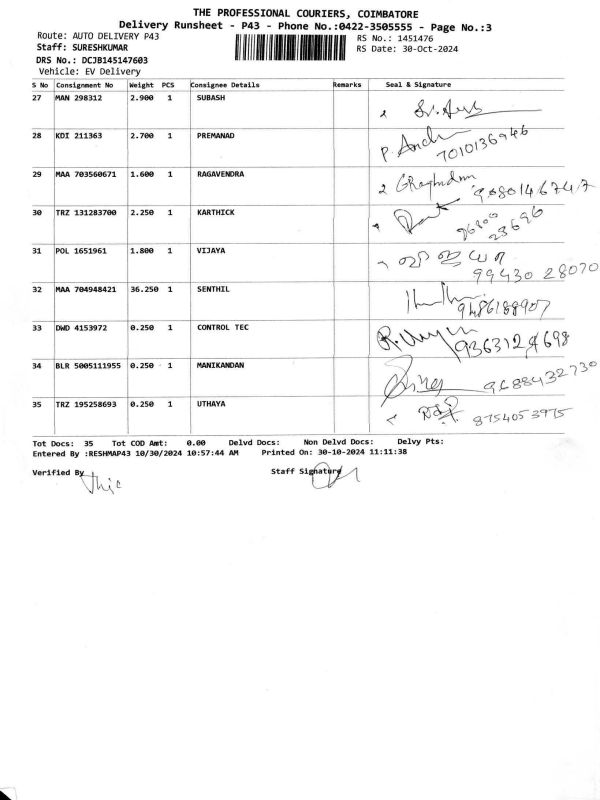 THE PROFESSIONAL COURIERS, COIMBATORE
Delivery Runsheet - P43 - Phone No.:0422-3505555 - Page No.:3
Route: AUTO DELIVERY P43 RS No.: 1451476
Staff: SURESHKUMAR RS Date: 30-Oct-2024
DRS No.: DCJB145147603
Vehicle: EV Delivery
S No Consignment No Weight PCS Consignee Details Remarks Seal & Signature
27 MAN 298312 2.900 1 SUBASH
28 KDI 211363 2.700 1 PREMANAD 7010136946
29 MAA 703560671 1.600 1 RAGAVENDRA 9080146747
30 TRZ 131283700 2.250 1 KARTHICK
31 POL 1651961 1.800 1 VIJAYA 99430 28070
32 MAA 704948421 36.250 1 SENTHIL 9486188907
33 DWD 4153972 0.250 1 CONTROL TEC
34 BLR 5005111955 0.250 1 MANIKANDAN 9688432730
35 TRZ 195258693 0.250 1 UTHAYA 8754053975
Tot Docs: 35 Tot COD Amt: 0.00 Delvd Docs: Non Delvd Docs: Delvy Pts:
Entered By :RESHMAP43 10/30/2024 10:57:44 AM Printed On: 30-10-2024 11:11:38
Verified By Staff Signature